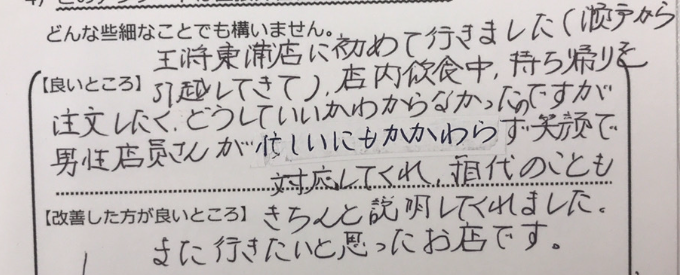 どんな些細なことでも構いません。
王将東浦店に初めて行きました(瀬戸から
【良いところ】引越してきて)、店内飲食中、持ち帰りを
注文したく、どうしていいかわからなかったのですが
男性店員さんが忙しいにもかかわらず笑顔で
対応してくれ、箱代のことも
【改善した方が良いところ】きちんと説明してくれました。
また行きたいと思ったお店です。